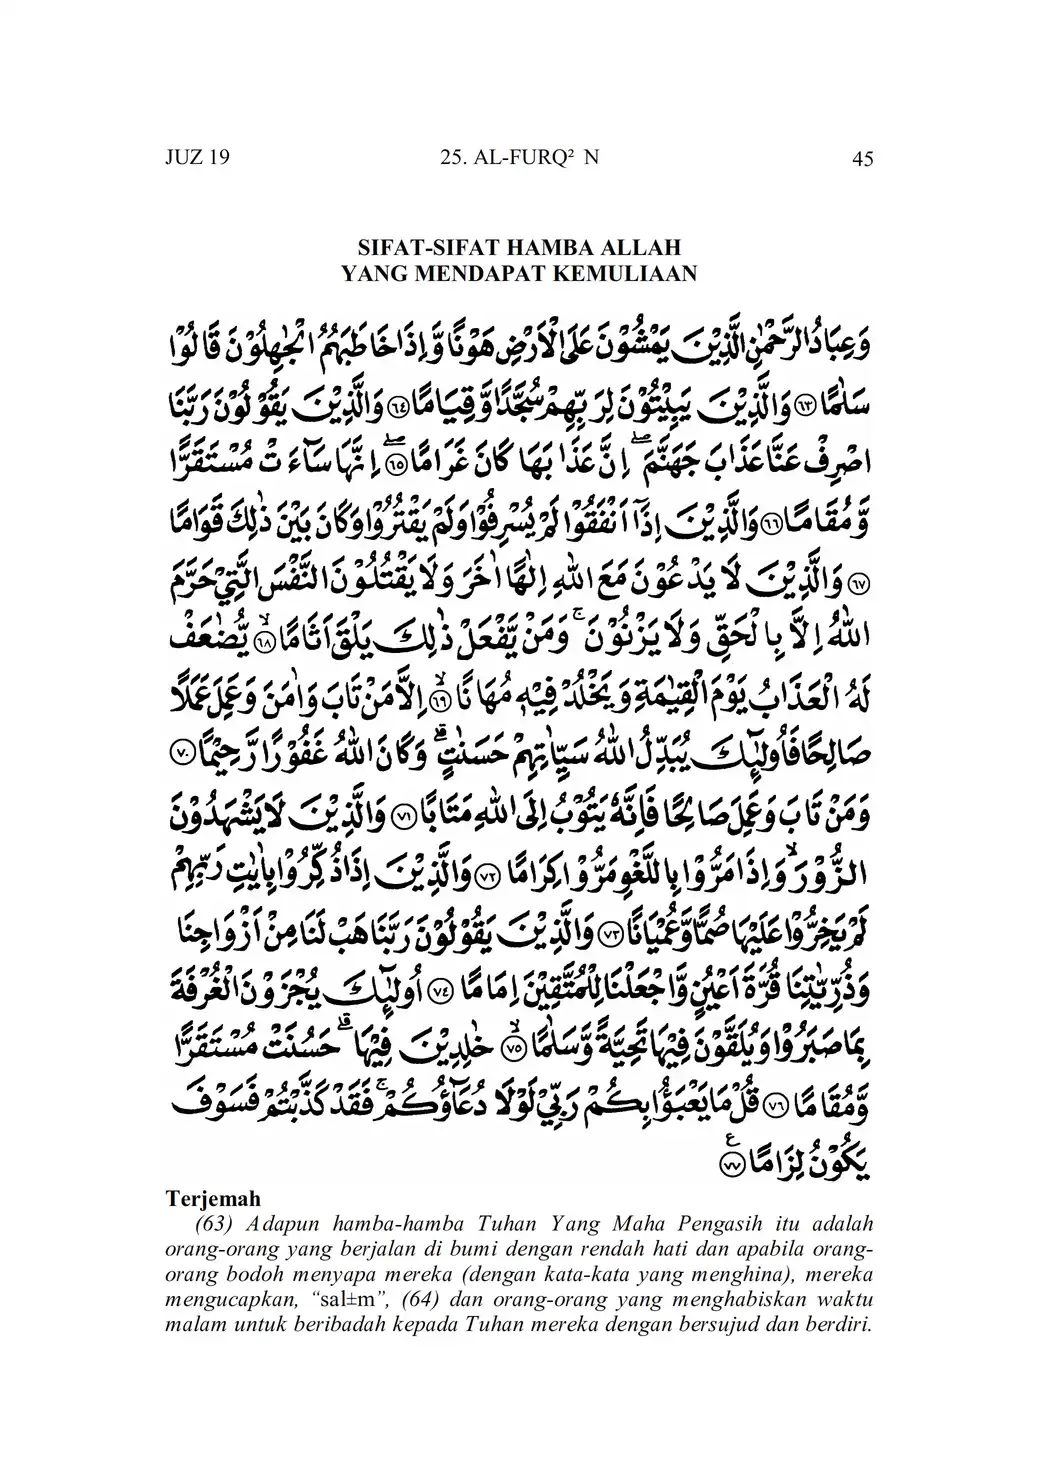 JUZ 19 25. AL-FURQ² N 45
SIFAT-SIFAT HAMBA ALLAH
YANG MENDAPAT KEMULIAAN
وَعِبَادُ الرَّحْمٰنِ الَّذِيْنَ يَمْشُوْنَ عَلَى الْاَرْضِ هَوْنًا وَّاِذَا خَاطَبَهُمُ الْجٰهِلُوْنَ قَالُوْا
سَلٰمًا ۝٦٣ وَالَّذِيْنَ يَبِيْتُوْنَ لِرَبِّهِمْ سُجَّدًا وَّقِيَامًا ۝٦٤ وَالَّذِيْنَ يَقُوْلُوْنَ رَبَّنَا
اصْرِفْ عَنَّا عَذَابَ جَهَنَّمَ ۖ اِنَّ عَذَابَهَا كَانَ غَرَامًا ۖ ۝٦٥ اِنَّهَا سَاۤءَتْ مُسْتَقَرًّا
وَّمُقَامًا ۝٦٦ وَالَّذِيْنَ اِذَآ اَنْفَقُوْا لَمْ يُسْرِفُوْا وَلَمْ يَقْتُرُوْا وَكَانَ بَيْنَ ذٰلِكَ قَوَامًا
۝٦٧ وَالَّذِيْنَ لَا يَدْعُوْنَ مَعَ اللّٰهِ اِلٰهًا اٰخَرَ وَلَا يَقْتُلُوْنَ النَّفْسَ الَّتِيْ حَرَّمَ
اللّٰهُ اِلَّا بِالْحَقِّ وَلَا يَزْنُوْنَ ۚ وَمَنْ يَّفْعَلْ ذٰلِكَ يَلْقَ اَثَامًا ۙ ۝٦٨ يُّضٰعَفْ
لَهُ الْعَذَابُ يَوْمَ الْقِيٰمَةِ وَيَخْلُدْ فِيْهٖ مُهَانًا ۙ ۝٦٩ اِلَّا مَنْ تَابَ وَاٰمَنَ وَعَمِلَ عَمَلًا
صَالِحًا فَاُولٰۤىِٕكَ يُبَدِّلُ اللّٰهُ سَيِّاٰتِهِمْ حَسَنٰتٍ ۗ وَكَانَ اللّٰهُ غَفُوْرًا رَّحِيْمًا ۝٧٠
وَمَنْ تَابَ وَعَمِلَ صَالِحًا فَاِنَّهٗ يَتُوْبُ اِلَى اللّٰهِ مَتَابًا ۝٧١ وَالَّذِيْنَ لَا يَشْهَدُوْنَ
الزُّوْرَ ۙ وَاِذَا مَرُّوْا بِاللَّغْوِ مَرُّوْا كِرَامًا ۝٧٢ وَالَّذِيْنَ اِذَا ذُكِّرُوْا بِاٰيٰتِ رَبِّهِمْ
لَمْ يَخِرُّوْا عَلَيْهَا صُمًّا وَّعُمْيَانًا ۝٧٣ وَالَّذِيْنَ يَقُوْلُوْنَ رَبَّنَا هَبْ لَنَا مِنْ اَزْوَاجِنَا
وَذُرِّيّٰتِنَا قُرَّةَ اَعْيُنٍ وَّاجْعَلْنَا لِلْمُتَّقِيْنَ اِمَامًا ۝٧٤ اُولٰۤىِٕكَ يُجْزَوْنَ الْغُرْفَةَ
بِمَا صَبَرُوْا وَيُلَقَّوْنَ فِيْهَا تَحِيَّةً وَّسَلٰمًا ۙ ۝٧٥ خٰلِدِيْنَ فِيْهَا ۗ حَسُنَتْ مُسْتَقَرًّا
وَّمُقَامًا ۝٧٦ قُلْ مَا يَعْبَؤُا بِكُمْ رَبِّيْ لَوْلَا دُعَاۤؤُكُمْ ۚ فَقَدْ كَذَّبْتُمْ فَسَوْفَ
يَكُوْنُ لِزَامًا ࣖ ۝٧٧
Terjemah
(63) Adapun hamba-hamba Tuhan Yang Maha Pengasih itu adalah
orang-orang yang berjalan di bumi dengan rendah hati dan apabila orang-
orang bodoh menyapa mereka (dengan kata-kata yang menghina), mereka
mengucapkan, “sal±m”, (64) dan orang-orang yang menghabiskan waktu
malam untuk beribadah kepada Tuhan mereka dengan bersujud dan berdiri.